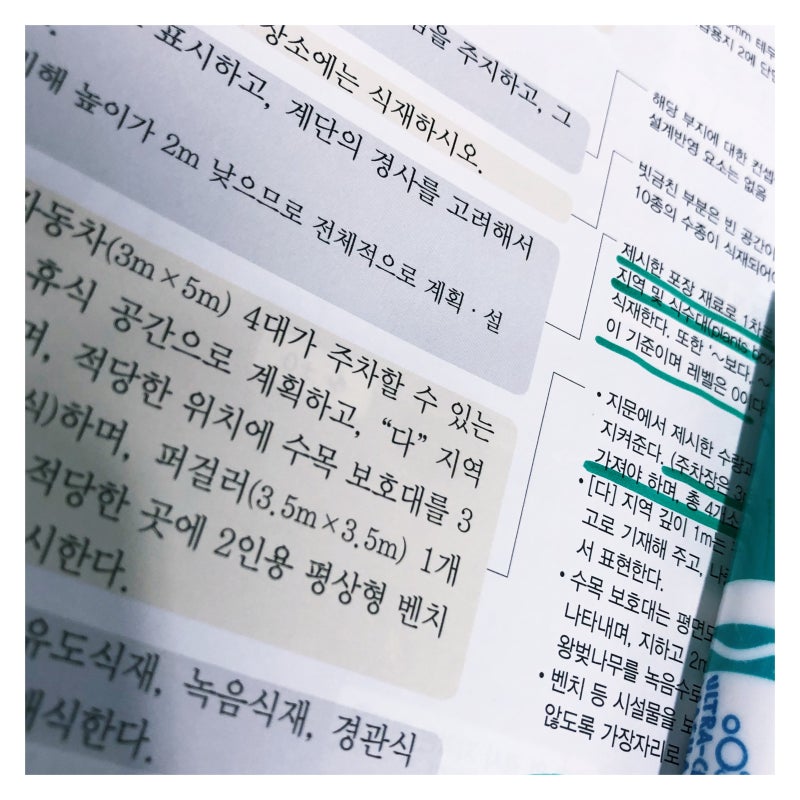 을 주지하고, 그
장소에는 식재하시오.
표시하고, 계단의 경사를 고려해서
높이가 2m 낮으므로 전체적으로 계획·설
자동차(3m×5m) 4대가 주차할 수 있는
휴식 공간으로 계획하고, “다” 지역
며, 적당한 위치에 수목 보호대를 3
식)하며, 퍼걸러(3.5m×3.5m) 1개
적당한 곳에 2인용 평상형 벤치
시한다.
유도식재, 녹음식재, 경관식
배식한다.
해당 부지에 대한 컨셉
설계반영 요소는 없음
빗금친 부분은 빈 공간이
10종의 수종이 식재되어야
제시한 포장 재료로 1차로
지역 및 식수대(plants box
식재한다. 또한 ‘~보다, ~
이 기준이며 레벨은 00이다
• 지문에서 제시한 수량과
지켜준다. (주차장은 3
가져야 하며, 총 4개소
• [다] 지역 깊이 1m는
고로 기재해 주고,
서 표현한다.
• 수목 보호대는 평면도
나타내며, 지하고 2m
왕벚나무를 녹음수로
• 벤치 등 시설물을
않도록 가장자리로
ULTRA-C